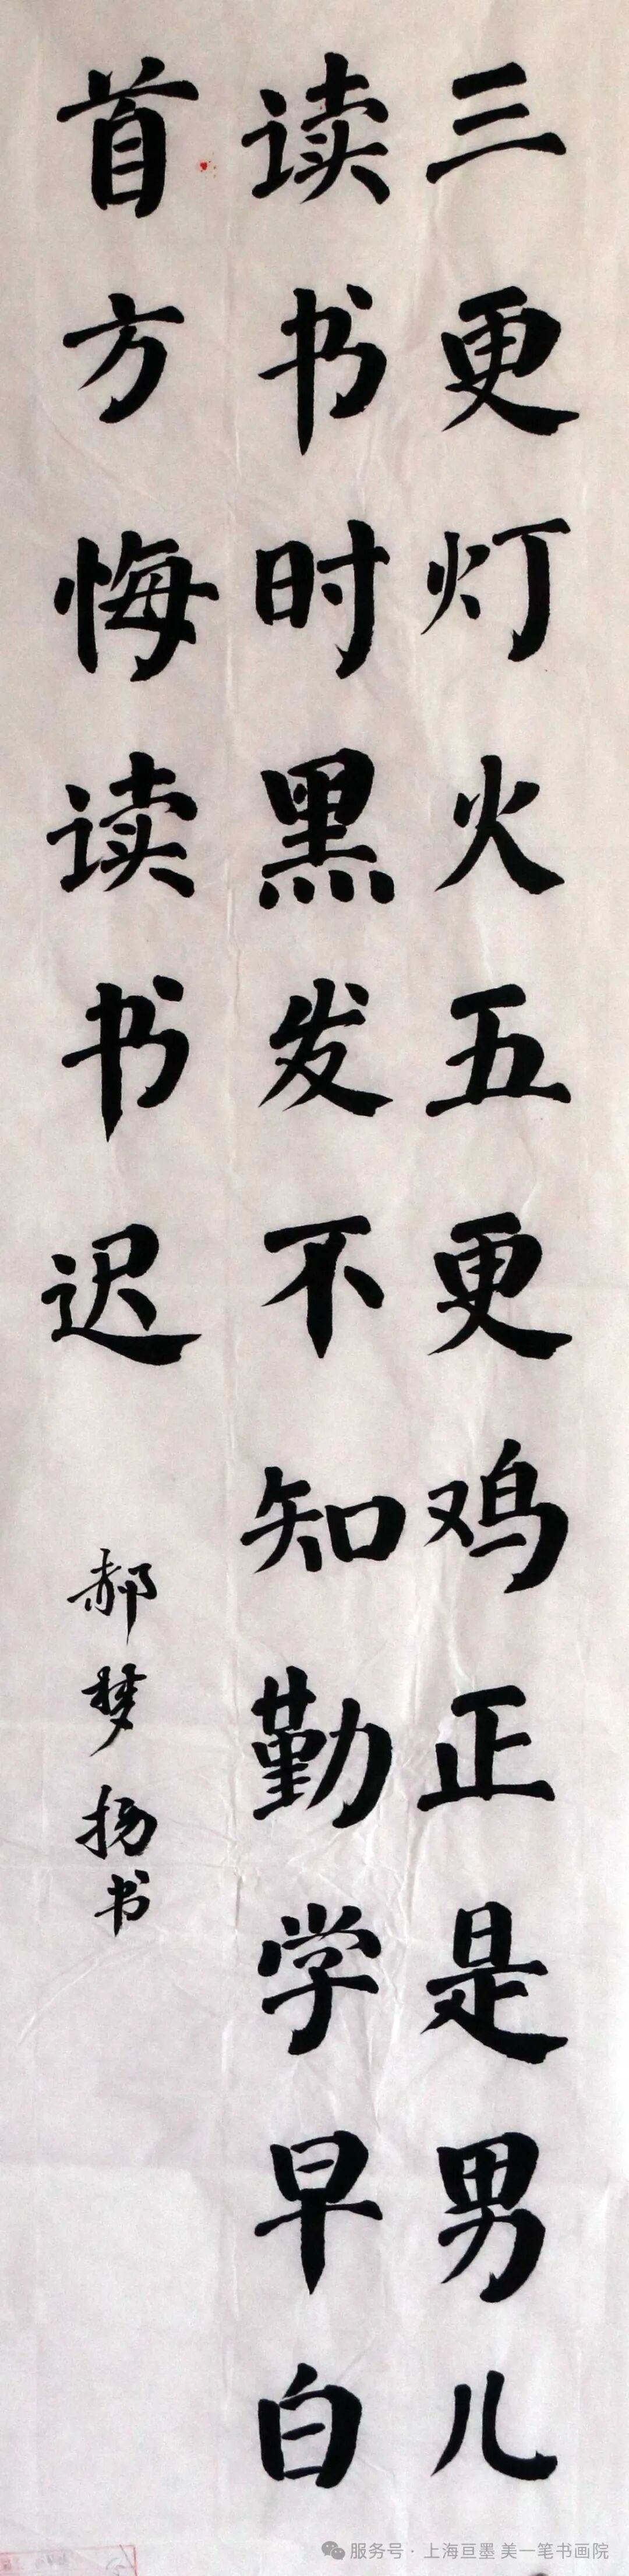 三更灯火五更鸡正是男儿
读书时黑发不知勤学早白
首方悔读书迟
郝梦扬书
服务号·上海亘墨 美一笔书画院